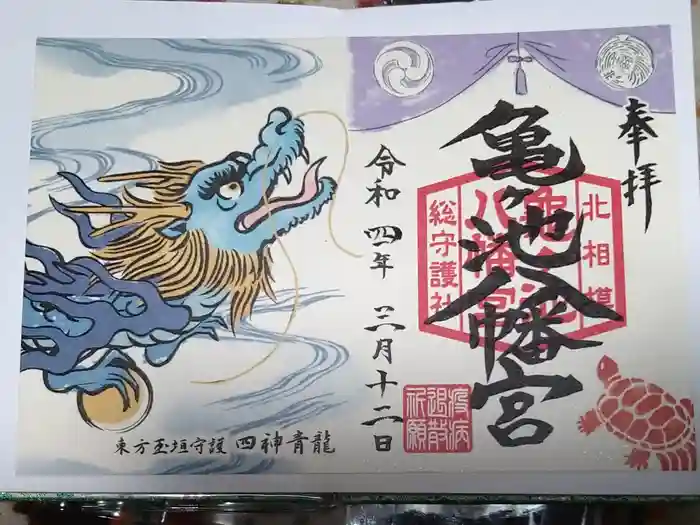 奉拝
北相模
亀ヶ池八幡宮
総守護社
亀ヶ池八幡宮
疫病
退散
祈願
令和四年 三月十二日
東方玉垣守護 四神青龍